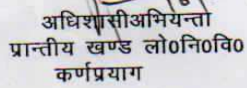 अधिशासीअभियन्ता
प्रान्तीय खण्ड लो0नि0वि0
कर्णप्रयाग